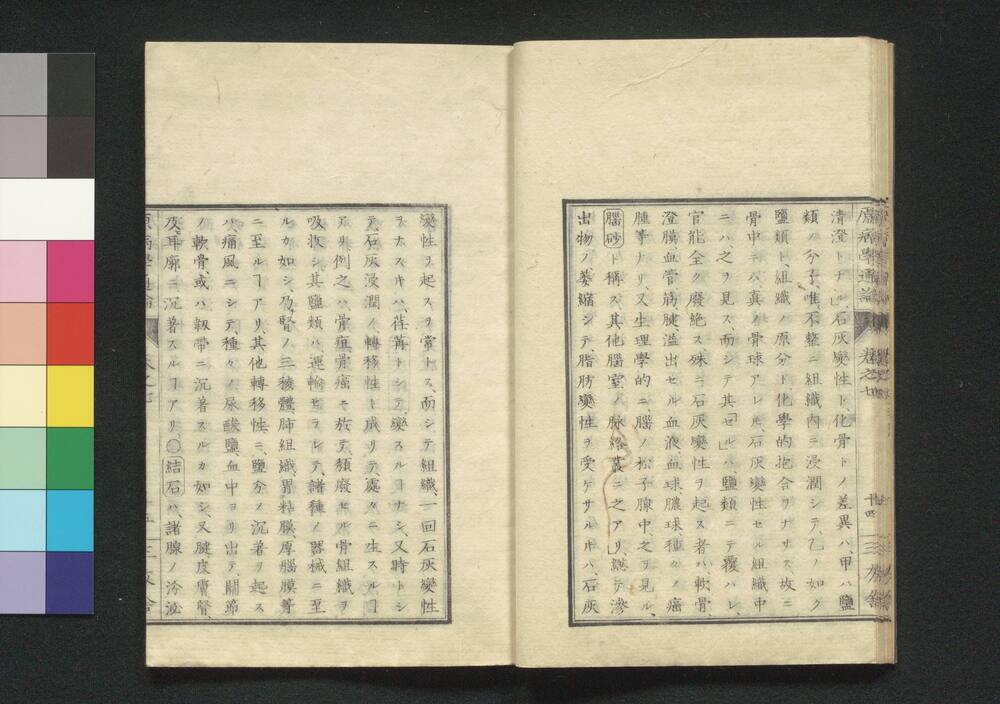 原病學通論
卷之七
十四
三友舍
清澄トナル」石灰變性ト化骨トノ差異ハ、甲ハ鹽
類ノ分子、唯、不整ニ組織内ニ浸潤シテ、乙ノ如ク
鹽類ト組織ノ原分ト化學的抱合ヲナサス、故ニ
骨中ニハ眞ノ骨球アレ𪜈、石灰變性セル組織中
ニハ、之ヲ見ス、而シテ其「セル」ハ鹽類ニテ覆ハレ、
官能全ク廢絶ス殊ニ石灰變性ヲ起ス者ハ、軟骨、
澄膜血管筋腱溢出セル血液血球膿球種々ノ癌
腫等ナリ、又生理學的ニ腦ノ松子腺中、之ヲ見ル、
腦砂ト稱ス其他腦室ノ脉絡叢ニ之アリ、」總テ滲
出物ノ萎縮シテ脂肪變性ヲ受ケサル𪜈ハ、石灰
變性ヲ起スヲ常トス、而シテ組織、一回石灰變性
ヲナスキハ、荏苒トシテ、變スルヿナシ、又時トシ
テ、石灰浸潤ノ轉移性ト成リテ、處々ニ生スルヿ
アリ、例之ハ、骨疽骨瘍ニ於テ、頽廢セル骨組織ヲ
吸收シ其鹽類ハ運輸セラレテ、諸種ノ器械ニ至
ルカ如シ、乃腎ノ三稜體、肺組織、胃粘膜、厚腦膜等
ニ至ルヿアリ、其他轉移性ニ、鹽分ノ沉著ヲ起ス
ハ、痛風ニシテ、種々ノ尿酸鹽、血中ヨリ出テ、關節
ノ軟骨、或ハ韌帶ニ沉著スルカ如シ、又腱皮膚腎、
及、耳廓ニ沉著スルヿアリ〇結石ハ、諸腺ノ分泌